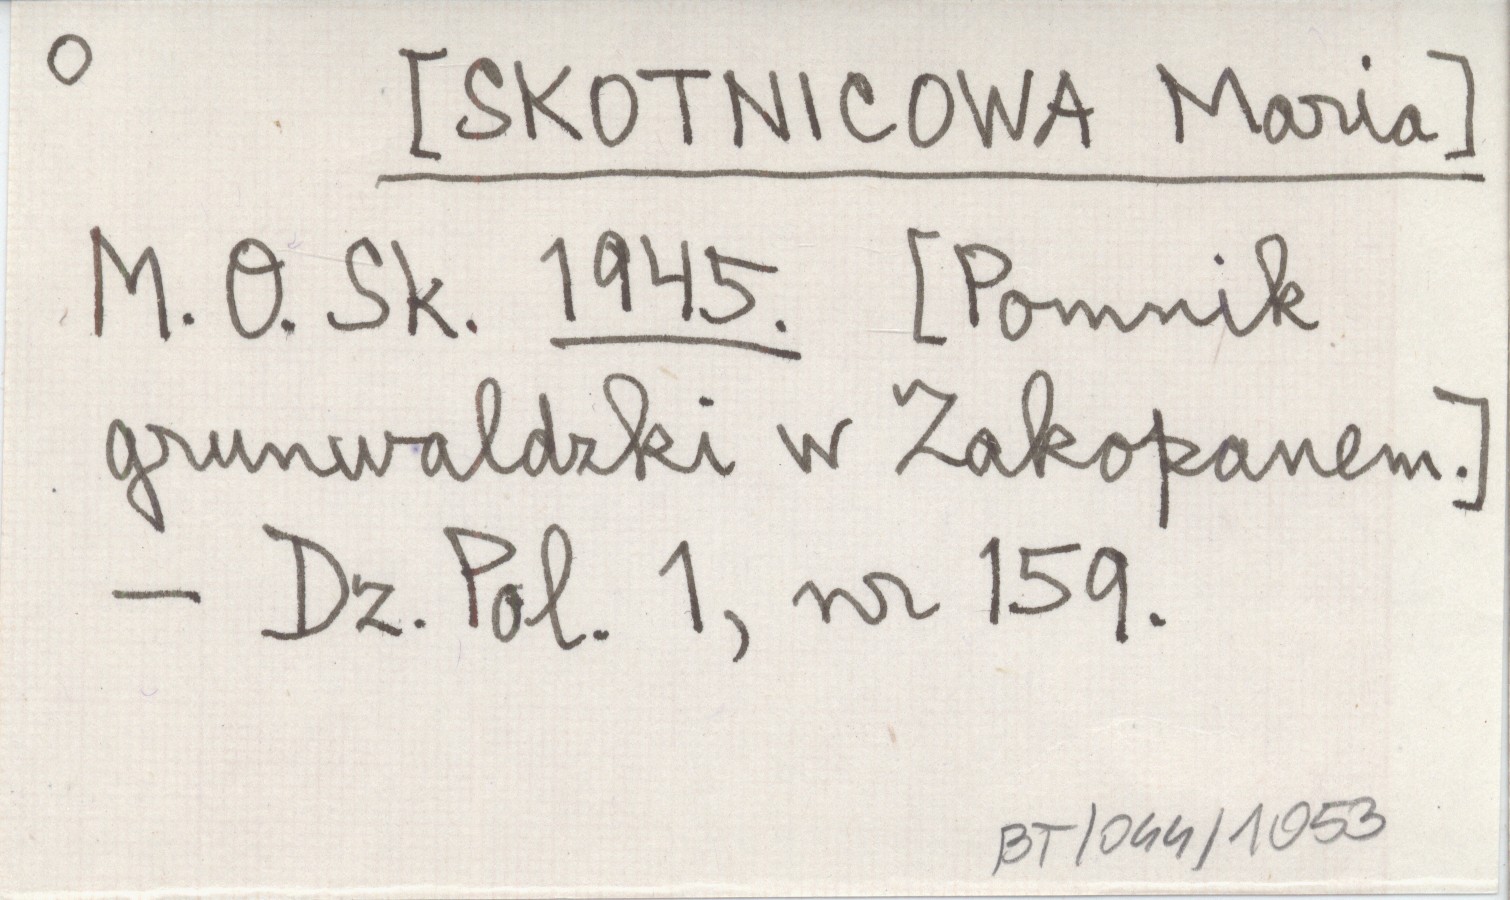 O
[SKOTNICOWA Maria]
M. O. Sk. 1945. [Pomnik
grunwaldzki w Zakopanem.]
— Dz. Pol. 1, nr 159.
BT/044/1053